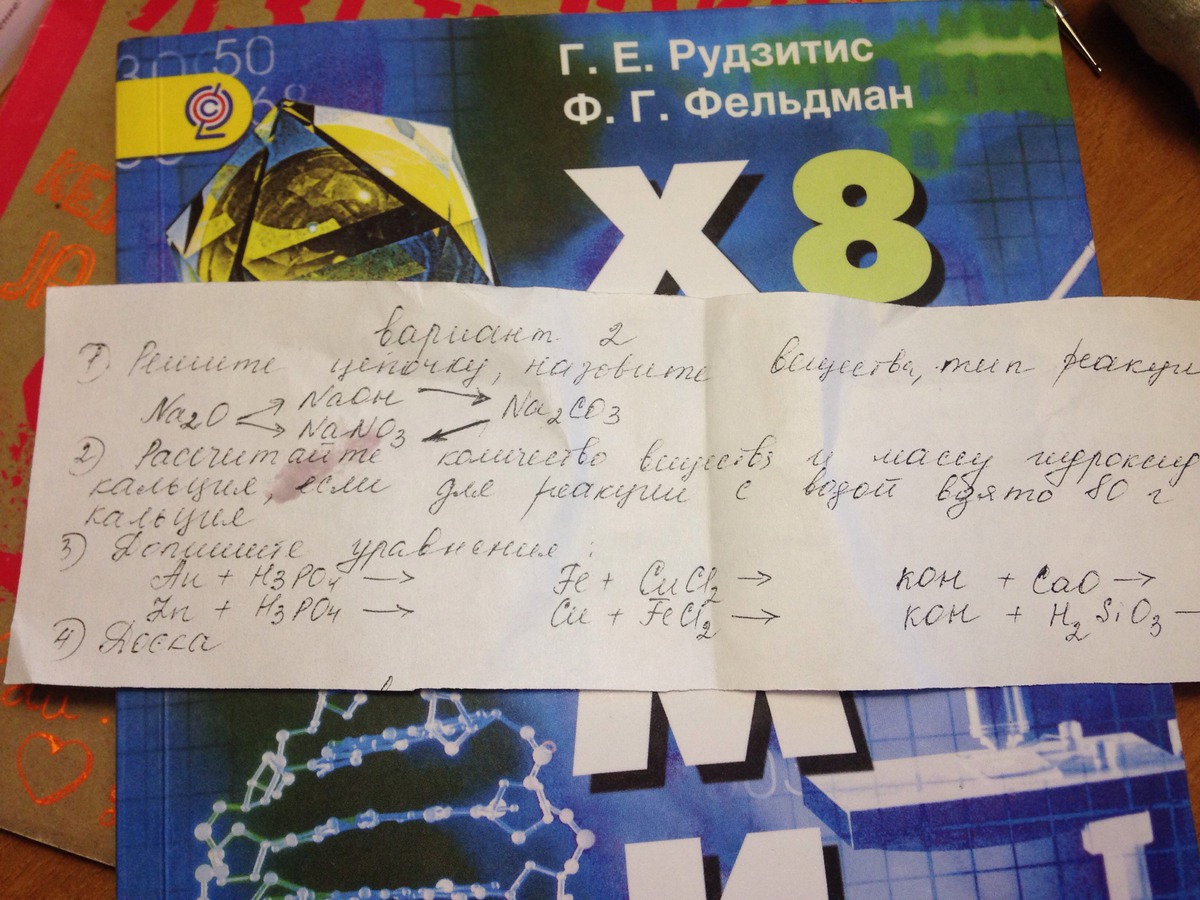 50
Г. Е. Рудзитис
Ф. Г. Фельдман
Х 8
вариант 2
1) Решите цепочку, назовите вещества, тип реакци
Na2O NaOH → Na2CO3
NaNO3
2) Рассчитайте количество веществ и массу гидроксид
кальция, если для реакции с водой взято 80 г
кальция
3) Допишите уравнения:
Au + H3PO4 → Fe + CuCl2 → KOH + CaO →
Zn + H3PO4 → Cu + FeCl2 → KOH + H2SiO3 →
4) Доска
М
И